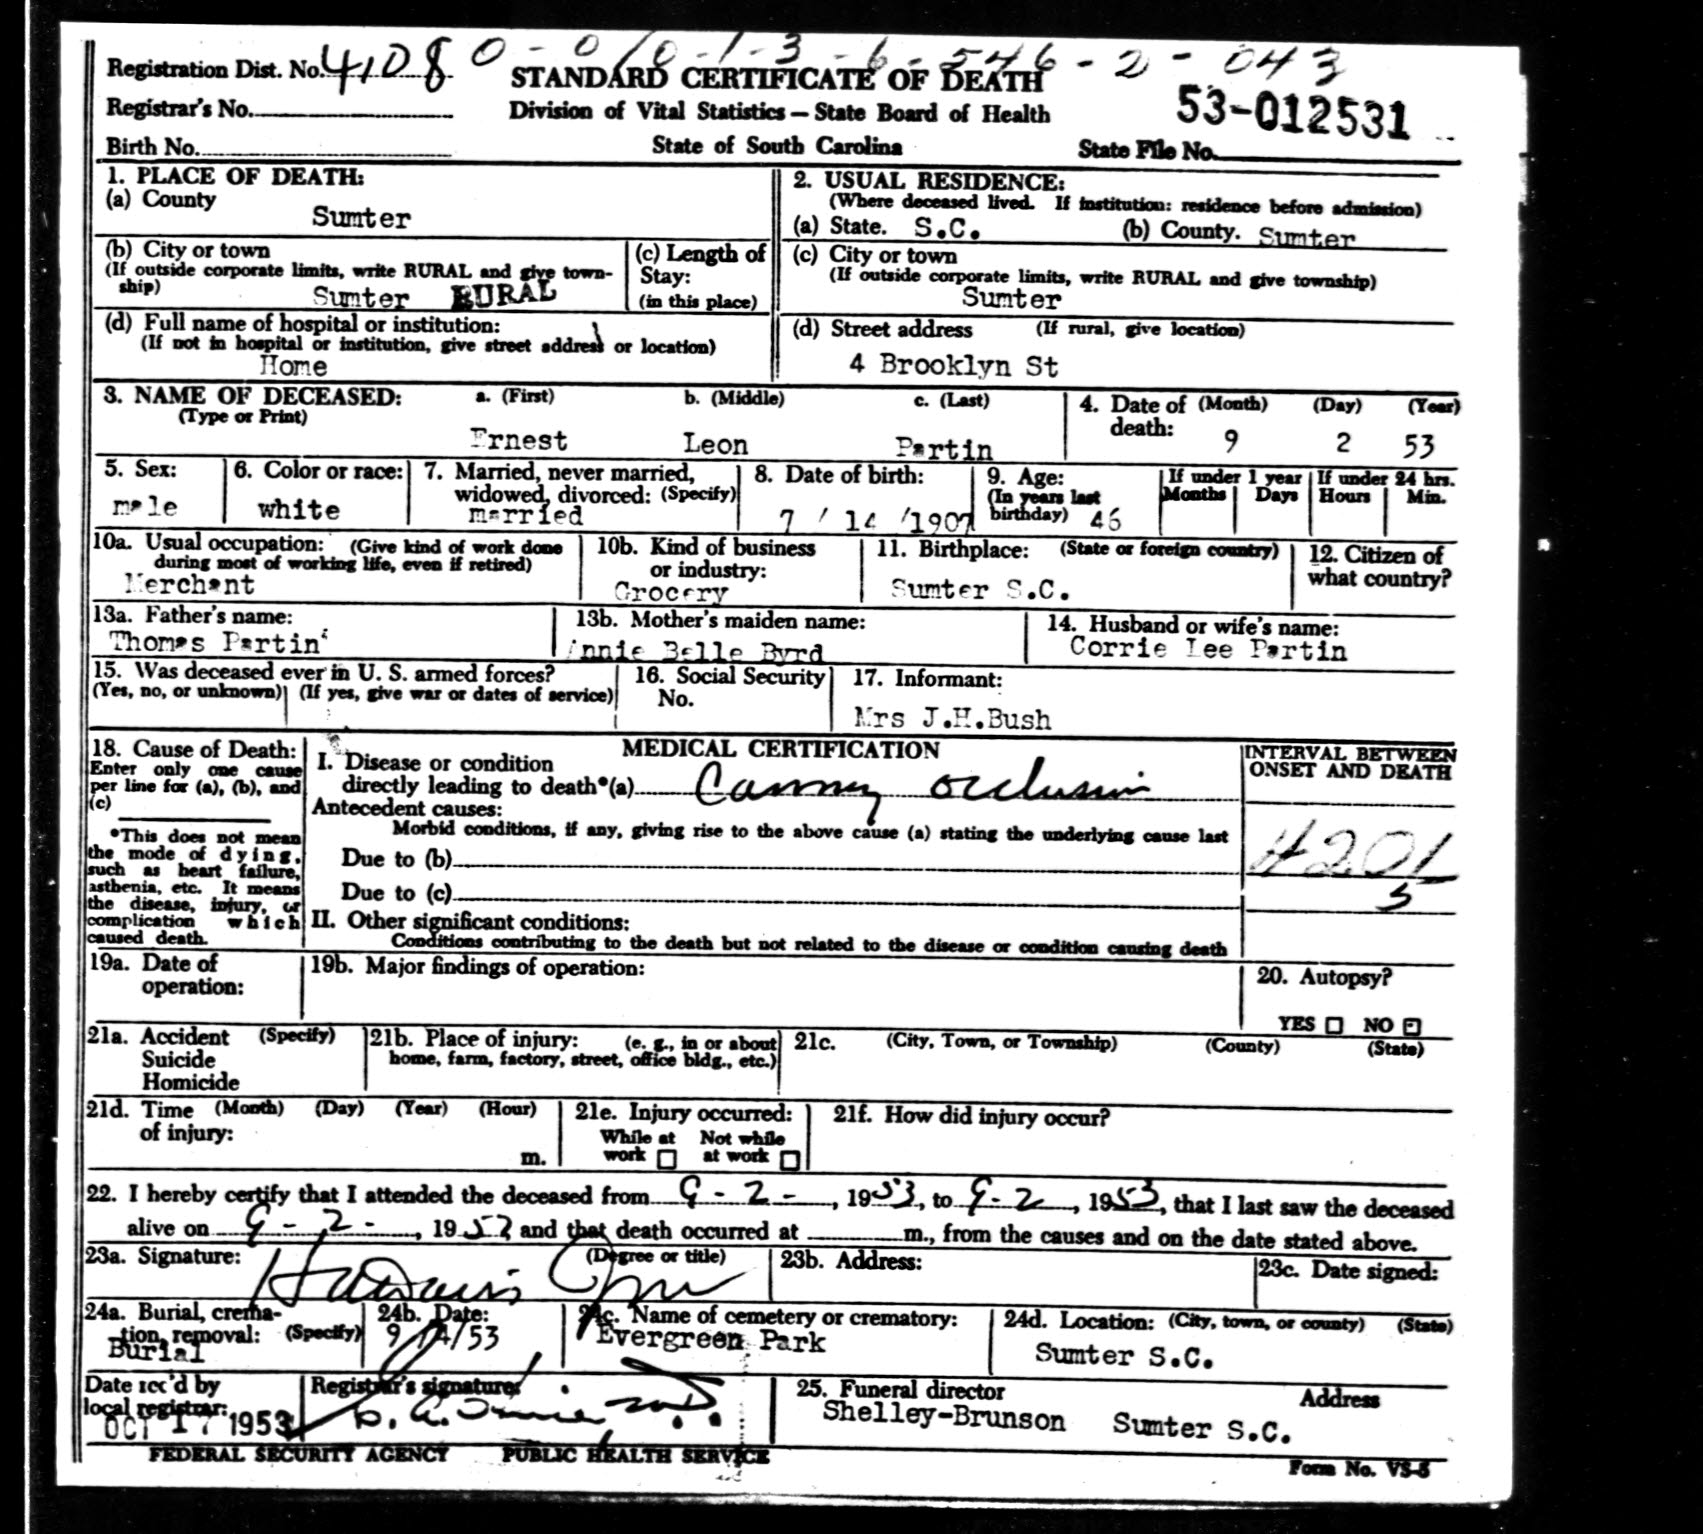 Registration Dist. No. 4108 0-0/0-1-3-6-546-2-043
STANDARD CERTIFICATE OF DEATH
Registrar's No.
Division of Vital Statistics — State Board of Health
53-012531
Birth No.
State of South Carolina
State File No.
1. PLACE OF DEATH:
(a) County
Sumter
2. USUAL RESIDENCE:
(Where deceased lived. If institution: residence before admission)
(a) State. S.C. (b) County. Sumter
(b) City or town
(If outside corporate limits, write RURAL and give town-
ship)
Sumter RURAL
(c) Length of
Stay:
(in this place)
(c) City or town
(If outside corporate limits, write RURAL and give township)
Sumter
(d) Full name of hospital or institution:
(If not in hospital or institution, give street address or location)
Home
(d) Street address (If rural, give location)
4 Brooklyn St
3. NAME OF DECEASED:
(Type or Print)
a. (First) b. (Middle) c. (Last)
Ernest Leon Partin
4. Date of (Month) (Day) (Year)
death: 9 2 53
5. Sex:
male
6. Color or race:
white
7. Married, never married,
widowed, divorced: (Specify)
married
8. Date of birth:
7 / 14 /1907
9. Age:
(In years last
birthday) 46
If under 1 year
Months Days
If under 24 hrs.
Hours Min.
10a. Usual occupation: (Give kind of work done
during most of working life, even if retired)
Merchant
10b. Kind of business
or industry:
Grocery
11. Birthplace: (State or foreign country)
Sumter S.C.
12. Citizen of
what country?
13a. Father's name:
Thomas Partin
13b. Mother's maiden name:
Annie Belle Byrd
14. Husband or wife's name:
Corrie Lee Partin
15. Was deceased ever in U. S. armed forces?
(Yes, no, or unknown) (If yes, give war or dates of service)
16. Social Security
No.
17. Informant:
Mrs J.H.Bush
18. Cause of Death:
Enter only one cause
per line for (a), (b), and
(c)
*This does not mean
the mode of dying,
such as heart failure,
asthenia, etc. It means
the disease, injury, or
complication which
caused death.
MEDICAL CERTIFICATION
I. Disease or condition
directly leading to death*(a) Coronary occlusion
Antecedent causes:
Morbid conditions, if any, giving rise to the above cause (a) stating the underlying cause last
Due to (b)
Due to (c)
II. Other significant conditions:
Conditions contributing to the death but not related to the disease or condition causing death
INTERVAL BETWEEN
ONSET AND DEATH
4201
5
19a. Date of
operation:
19b. Major findings of operation:
20. Autopsy?
YES NO
21a. Accident (Specify)
Suicide
Homicide
21b. Place of injury: (e. g., in or about
home, farm, factory, street, office bldg., etc.)
21c. (City, Town, or Township) (County) (State)
21d. Time (Month) (Day) (Year) (Hour)
of injury:
m.
21e. Injury occurred:
While at Not while
work at work
21f. How did injury occur?
22. I hereby certify that I attended the deceased from 9-2-, 1953, to 9-2, 1953, that I last saw the deceased
alive on 9-2-, 1953 and that death occurred at m., from the causes and on the date stated above.
23a. Signature: (Degree or title)
23b. Address:
23c. Date signed:
24a. Burial, crema-
tion, removal: (Specify)
Burial
24b. Date:
9/4/53
24c. Name of cemetery or crematory:
Evergreen Park
24d. Location: (City, town, or county) (State)
Sumter S.C.
Date rec'd by
local registrar:
OCT 17 1953
Registrar's signature:
25. Funeral director Address
Shelley-Brunson Sumter S.C.
FEDERAL SECURITY AGENCY PUBLIC HEALTH SERVICE
Form No. VS-5